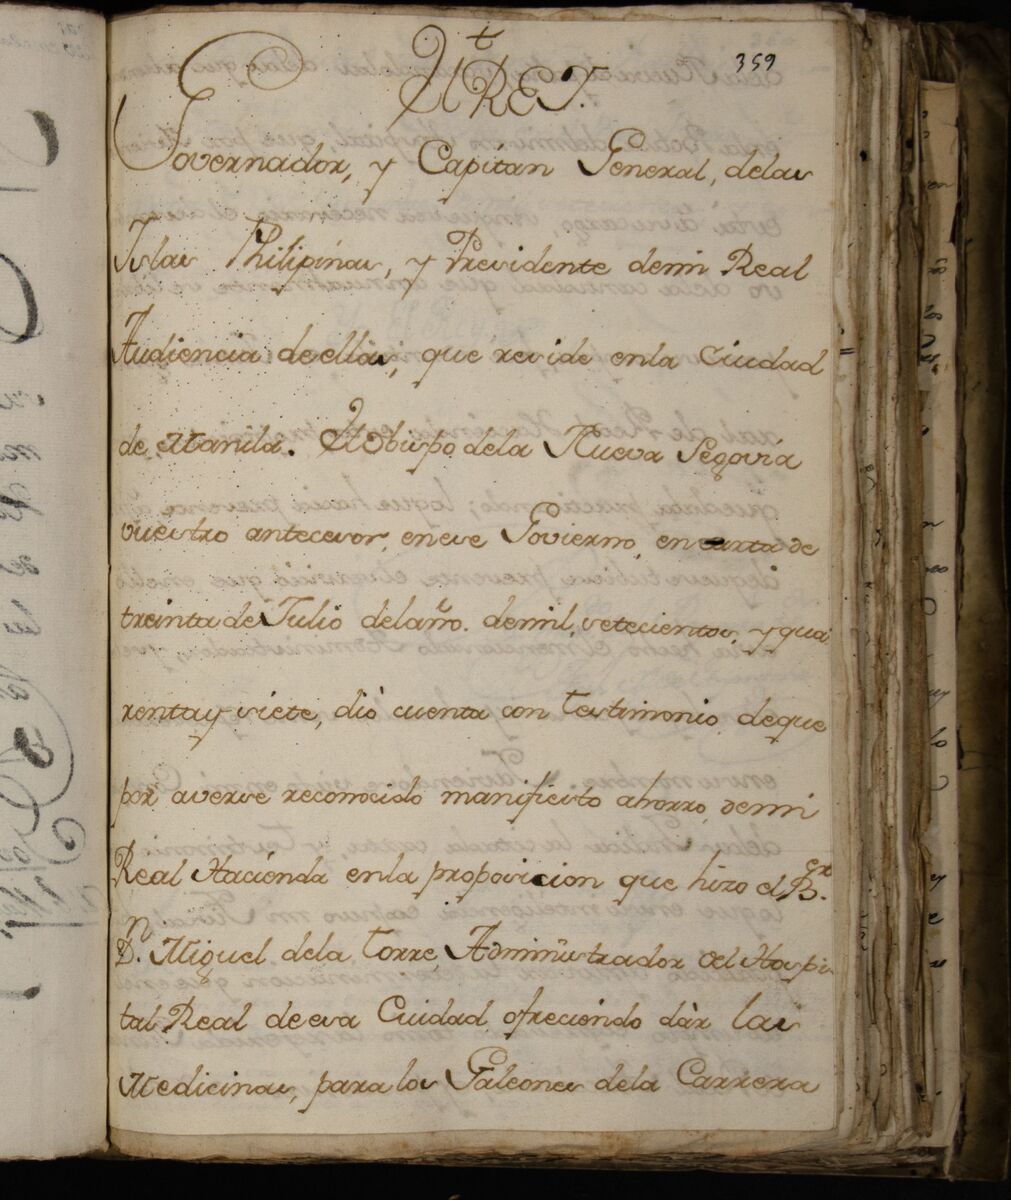 359
†
El REY.
Governador, y Capitan General, delas
Islas Philipinas, y Presidente demi Real
Audiencia deellas, que reside enla Ciudad
de Manila. El Obispo dela Nueva Segovia
vuestro antecesor, enese Govierno, encarta de
treinta de Julio delaño. demil, setecientos, y qua
rentay siete, diò cuenta con testimonio, deque
por averse reconocido manifiesto ahorro, demi
Real Hacienda enla proposicion que hizo el B.er
D.n Miguel dela Torre, Administrador del Hospi
tal Real deesa Ciudad, ofreciendo dàr las
Medicinas, para los Galeones dela Carrera